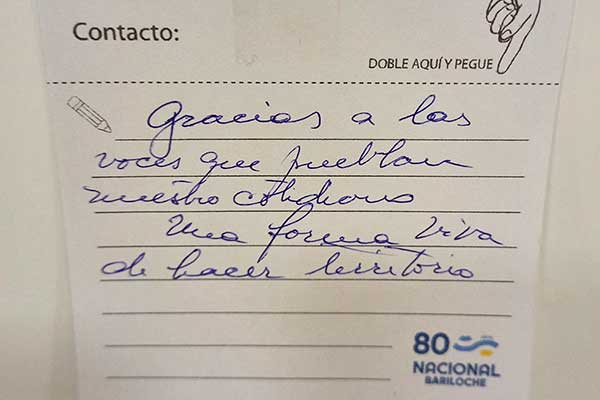 Contacto:
DOBLE AQUÍ Y PEGUE
Gracias a las
voces que pueblan
nuestro cotidiano
Una forma viva
de hacer territorio
80
NACIONAL
BARILOCHE